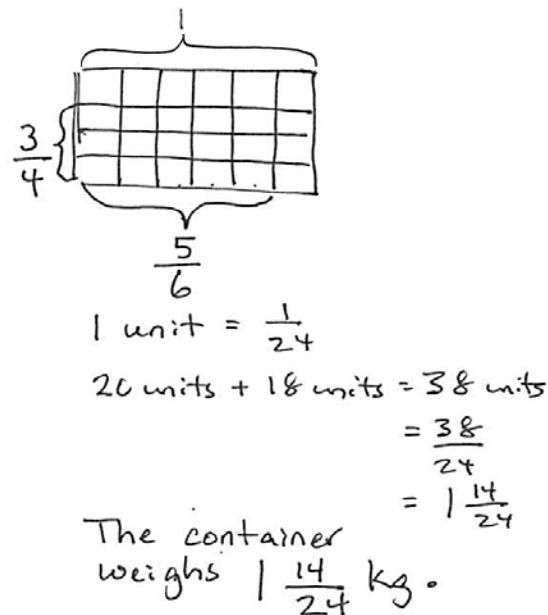 1
3/4
5/6
1 unit = 1/24
20 units + 18 units = 38 units
= 38/24
= 1 14/24
The container
weighs 1 14/24 kg.